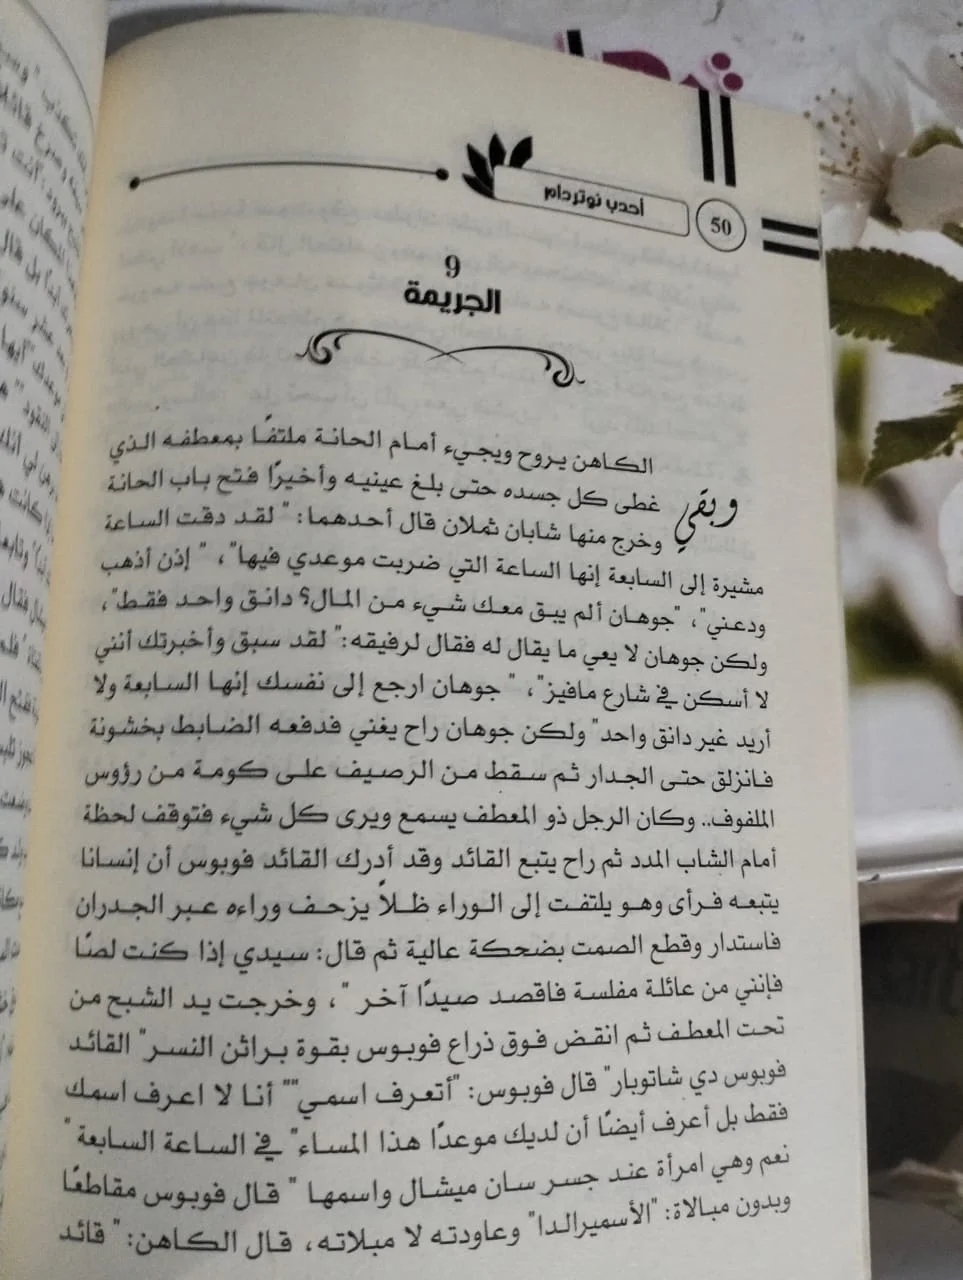 50
أحدب نوتردام
9
الجريمة
وبقي الكاهن يروح ويجيء أمام الحانة ملتفًا بمعطفه الذي
غطى كل جسده حتى بلغ عينيه وأخيرًا فتح باب الحانة
وخرج منها شابان ثملان قال أحدهما: " لقد دقت الساعة
مشيرة إلى السابعة إنها الساعة التي ضربت موعدي فيها"، " إذن أذهب
ودعني"، "جوهان ألم يبق معك شيء من المال؟ دانق واحد فقط"،
ولكن جوهان لا يعي ما يقال له فقال لرفيقه:" لقد سبق وأخبرتك أنني
لا أسكن في شارع مافيز"، " جوهان ارجع إلى نفسك إنها السابعة ولا
أريد غير دانق واحد" ولكن جوهان راح يغني فدفعه الضابط بخشونة
فانزلق حتى الجدار ثم سقط من الرصيف على كومة من رؤوس
الملفوف.. وكان الرجل ذو المعطف يسمع ويرى كل شيء فتوقف لحظة
أمام الشاب المدد ثم راح يتبع القائد وقد أدرك القائد فوبوس أن إنسانا
يتبعه فرأى وهو يلتفت إلى الوراء ظلاً يزحف وراءه عبر الجدران
فاستدار وقطع الصمت بضحكة عالية ثم قال: سيدي إذا كنت لصًا
فإنني من عائلة مفلسة فاقصد صيدًا آخر "، وخرجت يد الشبح من
تحت المعطف ثم انقض فوق ذراع فوبوس بقوة براثن النسر" القائد
فوبوس دي شاتوبار" قال فوبوس: "أتعرف اسمي"" أنا لا اعرف اسمك
فقط بل أعرف أيضًا أن لديك موعدًا هذا المساء" في الساعة السابعة "
نعم وهي امرأة عند جسر سان ميشال واسمها " قال فوبوس مقاطعًا
وبدون مبالاة: "الأسميرالدا" وعاودته لا مبلاته، قال الكاهن: " قائد